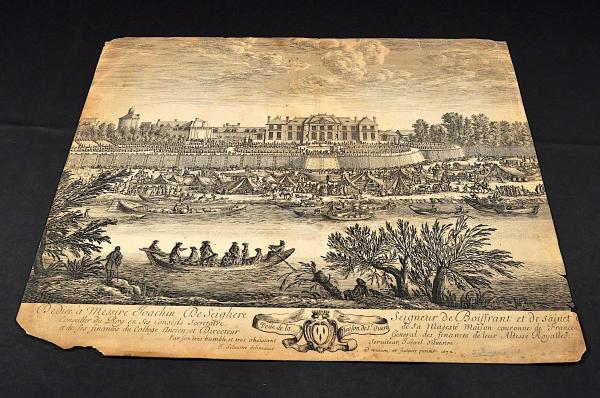 Dedieé a Messire Joachin De Seigliere
Conseiller du Roy en ses Conseils Secretaire
et de ses finances du College Ancien, et Directeur
Par son tres humble, et tres obeissant
Veüe de la
Maison de S.t Ouen
Seigneur de Boisfrant et de sainct
de sa Majesté Maison couronne de France
General des finances de leur Altesse Royalles
Serviteur Israel Silvestre